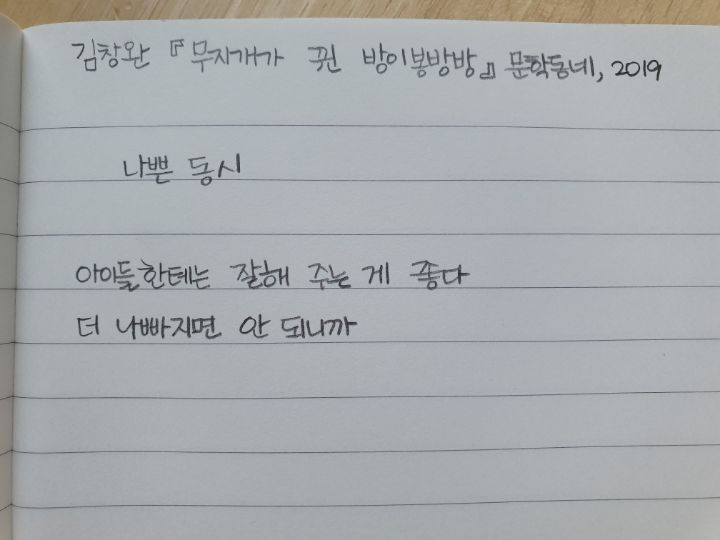 김창완 『무지개가 뀐 방이봉방방』 문학동네, 2019
나쁜 동시
아이들한테는 잘해 주는 게 좋다
더 나빠지면 안 되니까